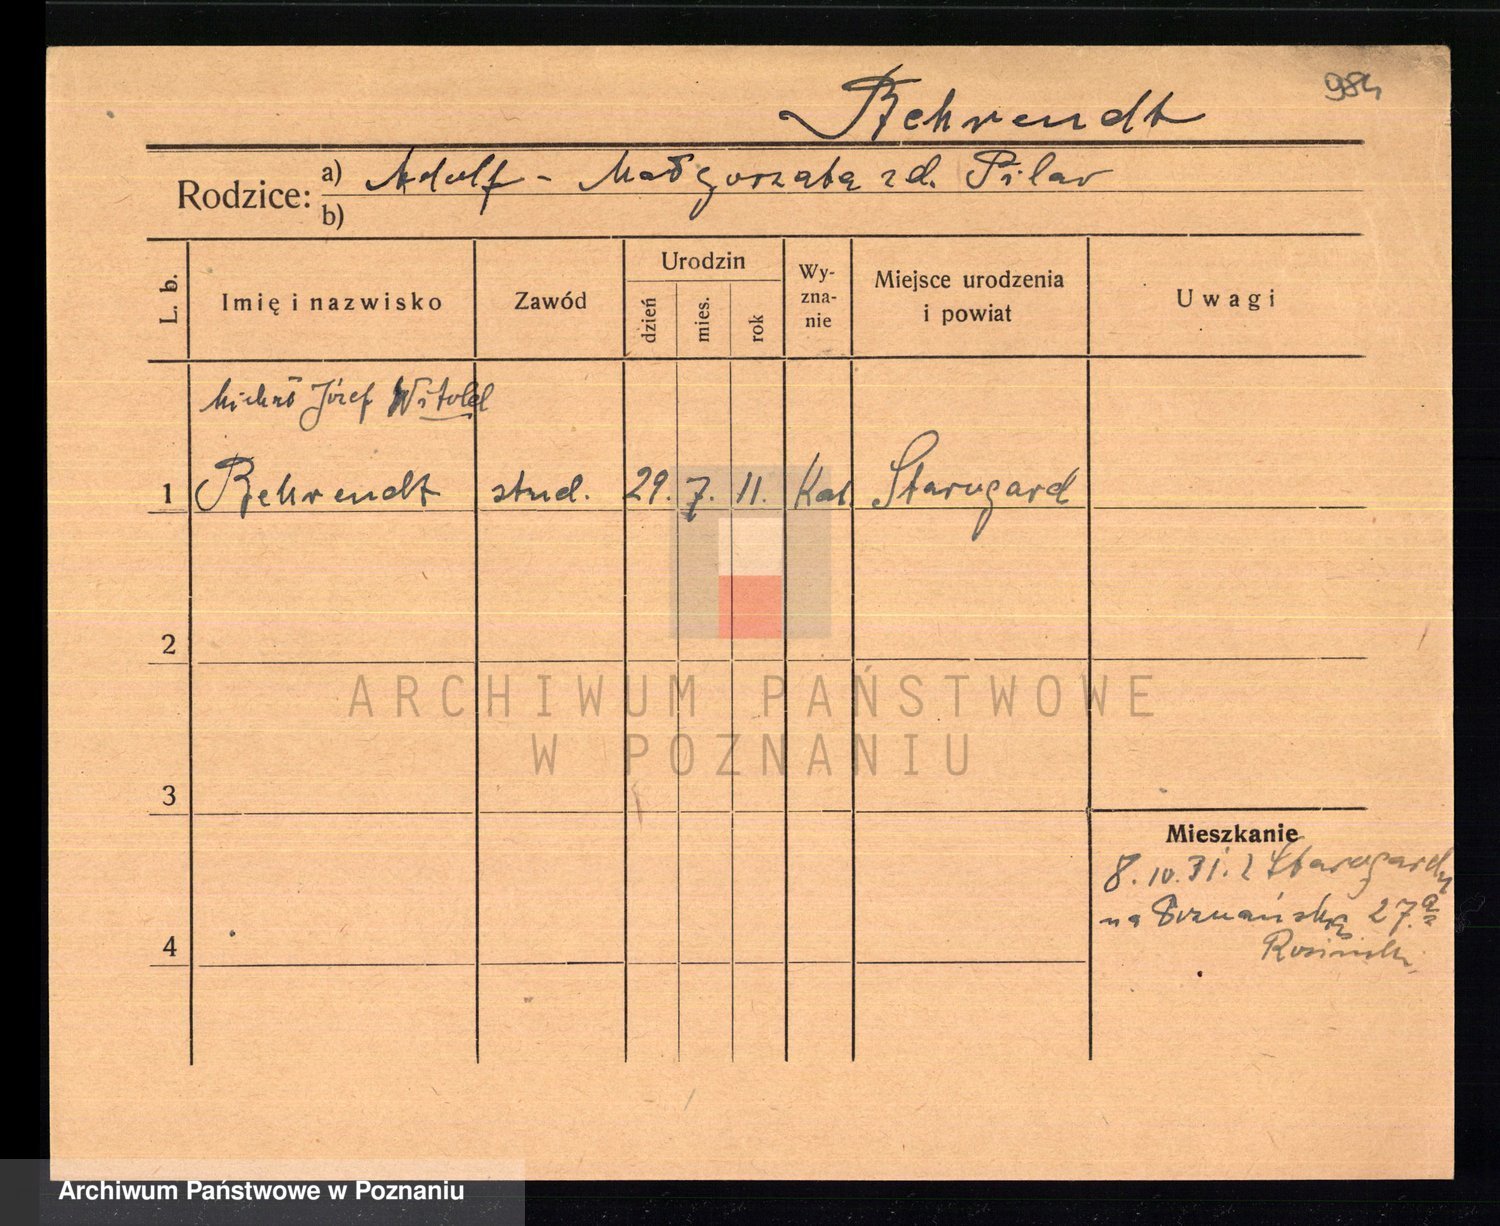 984
Behrendt
Rodzice: a) Adolf - Małgorzata zd. Pilar
b)
L. b. Imię i nazwisko Zawód Urodzin dzień mies. rok Wy-zna-nie Miejsce urodzenia i powiat Uwagi
Józef Witold
1 Behrendt stud. 29. 7. 11. Kat. Starogard
2
ARCHIWUM PAŃSTWOWE
W POZNANIU
3
Mieszkanie
8. 10. 31. z Starogardu
na Poznańska 27.
4
Archiwum Państwowe w Poznaniu